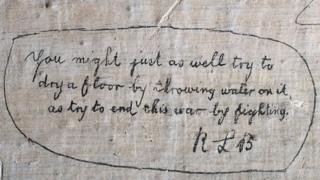 You might just as well try to
dry a floor by throwing water on it,
as try to end this war by fighting.